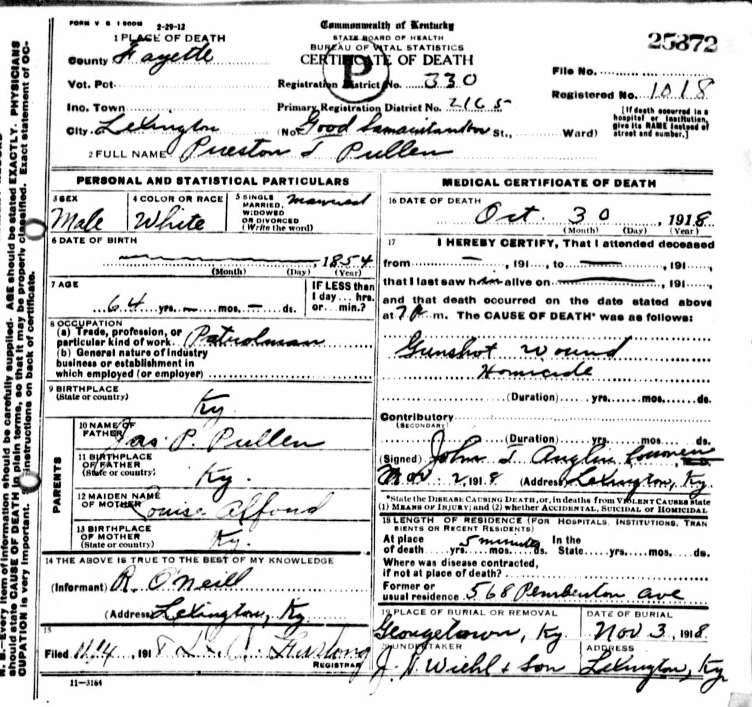 FORM V S 1 500M 2-29-12
Commonwealth of Kentucky
STATE BOARD OF HEALTH
BUREAU OF VITAL STATISTICS
CERTIFICATE OF DEATH
P
25872
1 PLACE OF DEATH
County Fayette
Vot. Pct.
Inc. Town
City Lexington
Registration District No. 330
Primary Registration District No. 2165
(No. Good St., Ward)
File No.
Registered No. 1018
[If death occurred in a
hospital or institution,
give its NAME instead of
street and number.]
2 FULL NAME Preston T Pullen
PERSONAL AND STATISTICAL PARTICULARS
3 SEX
Male
4 COLOR OR RACE
White
5 SINGLE
MARRIED,
WIDOWED
OR DIVORCED
(Write the word)
Married
6 DATE OF BIRTH
1854
(Month) (Day) (Year)
7 AGE
64 yrs. – mos. – ds.
IF LESS than
1 day... hrs.
or... min.?
8 OCCUPATION
(a) Trade, profession, or
particular kind of work Patrolman
(b) General nature of industry
business or establishment in
which employed (or employer)
9 BIRTHPLACE
(State or country)
Ky.
PARENTS
10 NAME OF
FATHER
Jas. P. Pullen
11 BIRTHPLACE
OF FATHER
(State or country)
Ky.
12 MAIDEN NAME
OF MOTHER
Louise Afford
13 BIRTHPLACE
OF MOTHER
(State or country)
Ky.
14 THE ABOVE IS TRUE TO THE BEST OF MY KNOWLEDGE
(Informant) R. O'Neill
(Address Lexington, Ky
15
Filed 11/4, 1918
REGISTRAR
11-3164
MEDICAL CERTIFICATE OF DEATH
16 DATE OF DEATH
Oct. 30, 1918
(Month) (Day) (Year)
17 I HEREBY CERTIFY, That I attended deceased
from –, 191 , to –, 191 ,
that I last saw him alive on –, 191 ,
and that death occurred on the date stated above
at 7 P m. The CAUSE OF DEATH* was as follows:
Gunshot Wound
Homicide
(Duration) yrs. mos. ds.
Contributory
(SECONDARY)
(Duration) yrs. mos. ds.
(Signed) John T. Anglin Coroner
Nov. 2, 1918 (Address) Lexington, Ky.
*State the DISEASE CAUSING DEATH, or, in deaths from VIOLENT CAUSES state
(1) MEANS OF INJURY; and (2) whether ACCIDENTAL, SUICIDAL or HOMICIDAL
18 LENGTH OF RESIDENCE (FOR HOSPITALS, INSTITUTIONS, TRAN
SIENTS OR RECENT RESIDENTS)
At place 5 minutes In the
of death yrs. mos. ds. State yrs. mos. ds.
Where was disease contracted,
if not at place of death?
Former or
usual residence 568 Pemberton ave
19 PLACE OF BURIAL OR REMOVAL
Georgetown, Ky.
DATE OF BURIAL
Nov 3, 1918
20 UNDERTAKER
J. H. Wiehl & Son
ADDRESS
Lexington, Ky
B.—Every item of information should be carefully supplied. AGE should be stated EXACTLY. PHYSICIANS
should state CAUSE OF DEATH in plain terms, so that it may be properly classified. Exact statement of OC-
CUPATION is very important. instructions on back of certificate.